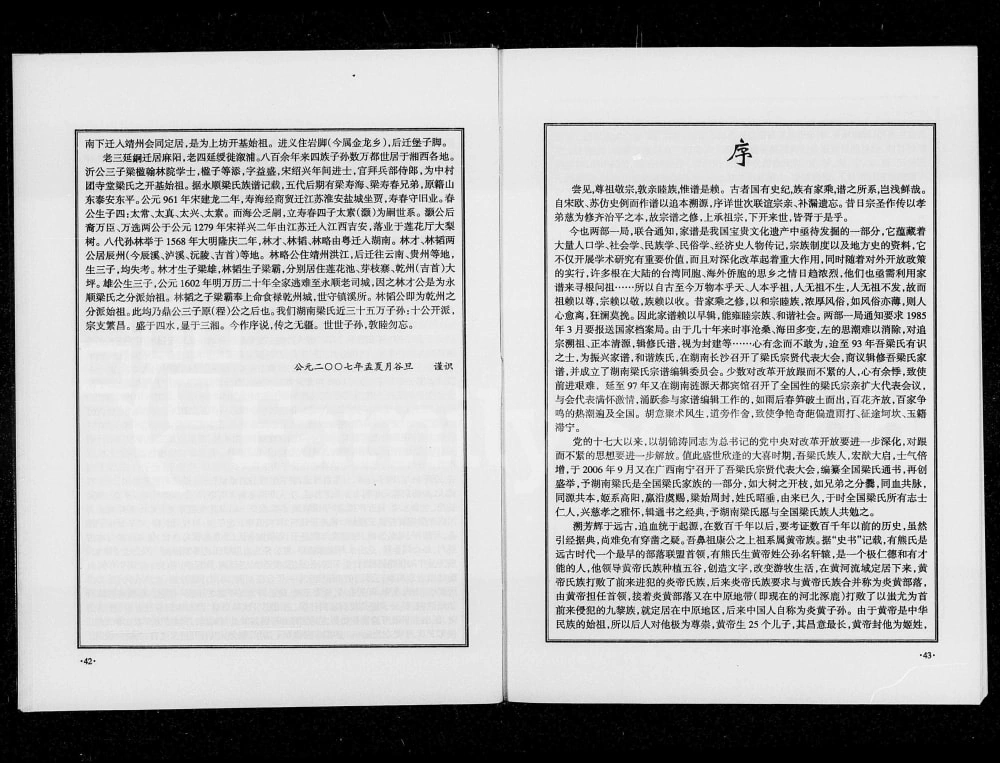 南下迁入靖州会同定居,是为上坊开基始祖。进义住岩脚(今属金龙乡),后迁堡子脚。
老三延鐦迁居麻阳,老四延绶徙溆浦。八百余年来四族子孙数万都世居于湘西各地。
沂公三子梁楹翰林院学士,楹子等添,字益盛,宋绍兴年间进士,官拜兵部侍郎,为中村
团寺堂梁氏之开基始祖。据永顺梁氏族谱记载,五代后期有梁寿海、梁寿春兄弟,原籍山
东泰安东平。公元961年宋建龙二年,寿海经商贸迁江苏淮安盐城坐贾,寿春守旧业。寿春
公生子四:太常、太真、太兴、太素。而海公乏嗣,立寿春四子太素(灏)为嗣世系。灏公后
裔万臣、万选两公于公元1279年宋祥兴二年由江苏迁入江西吉安,落业于莲花厅大梨
树。八代孙林举于1568年大明隆庆二年,林才、林韬、林略由粤迁入湖南。林才、林韬两
公居辰州(今辰溪、泸溪、沅陵、吉首)等地。林略公住靖州洪江,后迁往云南、贵州等地,
生三子,均失考。林才生子梁雄,林韬生子梁霸,分别居住莲花池、芽枝寨、乾州(吉首)大
坪。雄公生三子,公元1602年明万历二十年全家逃难至永顺老司城,因之林才公是为永
顺梁氏之分派始祖。林韬之子梁霸奉上命食禄乾州城,世守镇溪所。林韬公即为乾州之
分派始祖。此均乃鼎公三子原(程)公之后也。我们湖南梁氏近三十五万子孙;十公开派,
宗支繁昌。盛于四水,显于三湘。今作序说,传之无疆。世世子孙,敦睦勿忘。
公元二〇〇七年孟夏月谷旦 谨识
·42·
序
尝见,尊祖敬宗,敦亲睦族,惟谱是赖。古者国有史纪,族有家乘,谱之所系,岂浅鲜哉。
自宋欧、苏仿史例而作谱以追本溯源,序详世次联谊宗亲、补漏遗忘。昔日宗圣作传以孝
弟慈为修齐治平之本,故宗谱之修,上承祖宗,下开来世,皆胥于是乎。
今也两部一局,联合通知,家谱是我国宝贵文化遗产中亟待发掘的一部分,它蕴藏着
大量人口学、社会学、民族学、民俗学、经济史人物传记,宗族制度以及地方史的资料,它
不仅开展学术研究有重要价值,而且对深化改革起着重大作用,同时随着对外开放政策
的实行,许多根在大陆的台湾同胞、海外侨胞的思乡之情日趋浓烈,他们也亟需利用家
谱来寻根问祖……所以自古至今万物本乎天、人本乎祖,人无祖不生,人无祖不发,故而
祖赖以尊,宗赖以敬,族赖以收。昔家乘之修,以和宗睦族,浓厚风俗,如风俗亦薄,则人
心愈离,狂澜莫挽。因此家谱赖以早辑,能雍睦宗族、和谐社会。两部一局通知要求1985
年3月要报送国家档案局。由于几十年来时事沧桑、海田多变,左的思潮难以消除,对追
宗溯祖、正本清源,辑修氏谱,视为封建等……心有念而不敢为,迨至93年吾梁氏有识
之士,为振兴家谱,和谐族氏,在湖南长沙召开了梁氏宗贤代表大会,商议辑修吾梁氏家
谱,并成立了湖南梁氏宗谱编辑委员会。少数对改革开放跟而不紧的人,心有余悸,致使
前进艰难,延至97年又在湖南涟源天都宾馆召开了全国性的梁氏宗亲扩大代表会议,
与会代表满怀激情,涌跃参与家谱编辑工作的,如雨后春笋破土而出,百花齐放,百家争
鸣的热潮遍及全国。胡意聚术风生,道旁作舍,致使争艳奇葩偏遭雨打、征途坷坎、玉籍
滞宁。
党的十七大以来,以胡锦涛同志为总书记的党中央对改革开放要进一步深化,对跟
而不紧的思想要进一步解放。值此盛世欣逢的大喜时期,吾梁氏族人,宏猷大启,士气倍
增,于2006年9月又在广西南宁召开了吾梁氏宗贤代表大会,编纂全国梁氏通书,再创
盛举,予湖南梁氏是全国梁氏家族的一部分,如大树之开枝,如兄弟之分爨,同血共脉,
同源共本,姬系高阳,嬴沿虞赐,梁始周封,姓氏昭垂,由来已久,于时全国梁氏所有志士
仁人,兴慈孝之雅怀,辑通书之经典,予湖南梁氏愿与全国梁氏族人共勉之。
溯芳辉于远古,追血统于起源,在数百千年以后,要考证数百千年以前的历史,虽然
引经据典,尚难免有穿凿之疑。吾鼻祖康公之上祖系属黄帝族。据“史书”记载,有熊氏是
远古时代一个最早的部落联盟首领,有熊氏生黄帝姓公孙名轩辕,是一个极仁德和有才
能的人,他领导黄帝氏族种植五谷,创造文字,改变游牧生活,在黄河流域定居下来,黄
帝氏族打败了前来进犯的炎帝氏族,后来炎帝氏族要求与黄帝氏族合并称为炎黄部落,
由黄帝担任首领,接着炎黄部落又在中原地带(即现在的河北涿鹿)打败了以蚩尤为首
前来侵犯的九黎族,就定居在中原地区,后来中国人自称为炎黄子孙。由于黄帝是中华
民族的始祖,所以后人对他极为尊崇,黄帝生25个儿子,其昌意最长,黄帝封他为姬姓,
·43·